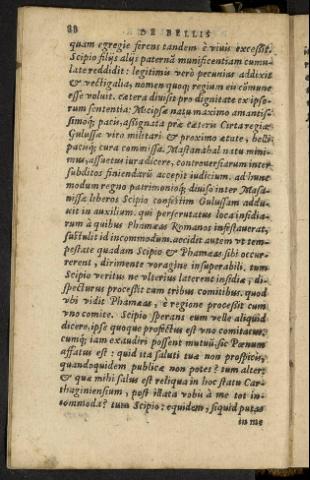 88 DE BELLIS
quam egregie ferens tandem è viuis excessit.
Scipio filijs alijs paterna munificentiam cumu-
late reddidit: legitimis verò pecunias addixit
& vectigalia, nomen quoq; regium eis cōmune
esse voluit. cætera diuisit pro dignitate ex ipso-
rum sententia: Micipsæ natu maximo amantis-
simoq; pacis, assignata præ cæteris Cirta regia:
Gulussæ viro militari & proximo ætate, belli
paciq; cura commissa. Mastanabal natu mini-
mus, assuetus iura dicere, controuersiarum inter
subditos finiendarū accepit iudicium. ad hunc
modum regno patrimonioq; diuiso inter Masa-
nissæ liberos Scipio confestim Gulussam addu-
xit in auxilium. qui perscrutatus loca insidia-
rum à quibus Phameas Romanos infestauerat,
sustulit id incommodum. accidit autem vt tem-
pestate quadam Scipio & Phameas sibi occur-
rerent, dirimente voragine insuperabili. tum
Scipio veritus ne vlterius laterent insidiæ, di-
specturus processit cum tribus comitibus. quod
vbi vidit Phameas, è regione processit cum
vno comite. Scipio sperans eum velle aliquid
dicere, ipse quoque profectus est vno comitatus.
cumq; iam exaudiri possent mutuū, sic Pœnum
affatus est: quid ita saluti tuæ non prospicis,
quandoquidem publicæ non potes? tum alter:
& quæ mihi salus est reliqua in hoc statu Car-
thaginiensium, post illata vobis à me tot in-
commoda? tum Scipio: equidem, siquid putas
in me